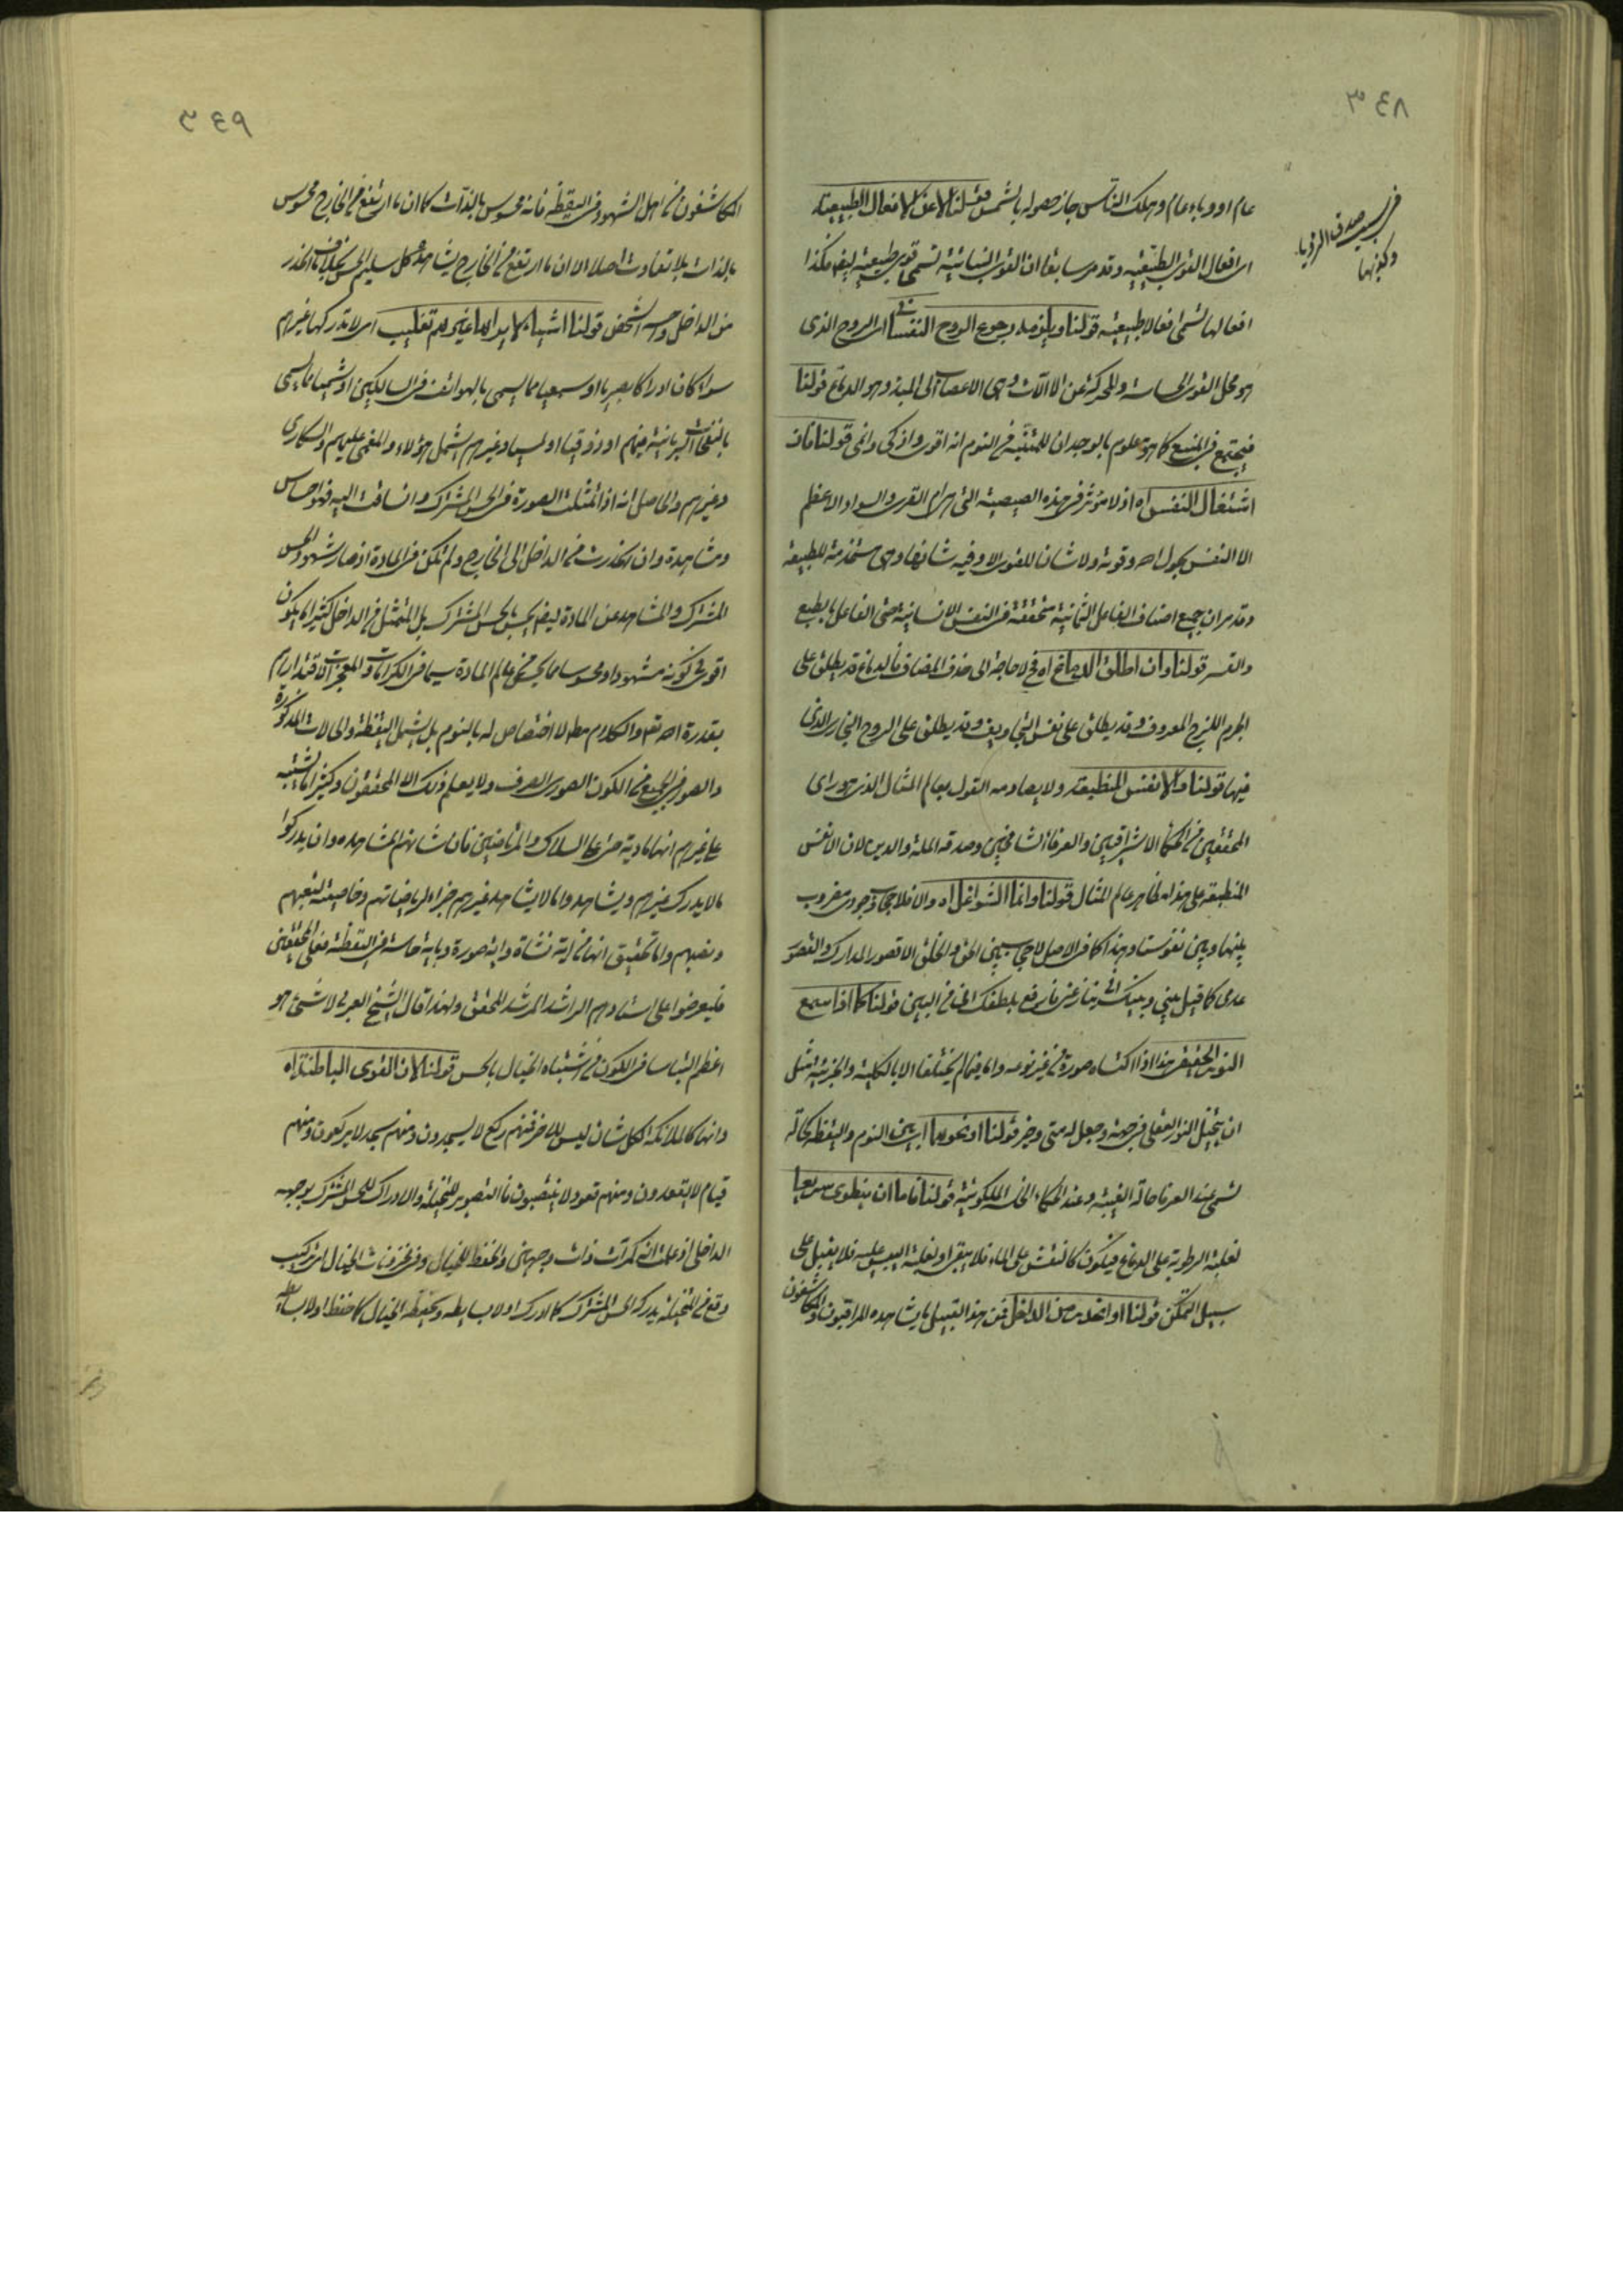 ٣٤٨
في سبب صدق الرؤيا
وكذبها
عام او وباء عام وهلك الناس جاز حصوله بالشمس قولنا لا عن الافعال الطبيعية
اى افعال القوى الطبيعية وقد مر سابقا ان القوى النباتية تسمى قوى طبيعية ايضا فكذا
افعالها تسمى افعالا طبيعية قولنا ويلزمه رجوع الروح النفسانى اى الروح الذى
هو محل القوى الحساسة والمحركة عن الالآت وهى الاعصاب الى المبدء وهو الدماغ قولنا
فيجتمع فى المنبع كما هو معلوم بالوجدان للمتنبه فى النوم انه اقوى واذكى وانمى قولنا فان
اشتغال النفس اه اذ لا مؤثر فى هذه الصيصية التى هى ام القرى والسواد الاعظم
الا النفس بحول اله وقوته ولا شان للقوى الا وفيه شانها وهى مستخدمة للطبيعة
وقد مر ان جميع اصناف الفاعل الثمانية متحققة فى النفس الانسانية حتى الفاعل بالطبع
والقسر قولنا وان اطلق الدماغ اه فح لا حاجة الى حذف المضاف فالدماغ قد يطلق على
الجرم اللزج المعروف وقد يطلق على نفس التجاويف وقد يطلق على الروح البخارى الذى
فيها قولنا والانفس المنطبعة ولا يصادمه القول بعالم المثال الذى هو راى
المحققين من الحكماء الاشراقيين والعرفاء الشامخين وصدقه الملة والدين لان الانفس
المنطبعة على هذا مظاهر عالم المثال قولنا وانما الشواغل اه والا فلا حجاب وجودى مضروب
بينها وبين نفوسنا وهذا كما فى الاصل لا حجاب بين الحق والخلق الا قصور المدارك والقصور
عدمى كما قيل بينى وبينك انى ينازعنى فارفع بلطفك انى من البين قولنا كما اذا سمع
النور الحقيقى هذا اذا اكتساه صورة من غير نوعه واما فيما لم يختلفا الا بالكلية والجزئية فمثل
ان يتخيل النور العقلى فى جهة وجعل له متى وحيز قولنا او نحوهما اى بين النوم واليقظة كحالة
تسمى عند العرفا حالة الغيبة وعند الحكماء الخلسة الملكوتية قولنا فاما ان ينطوى سريعا
لغلبة الرطوبة على الدماغ فيكون كالنقش على الماء فلا يبقى او لغلبة اليبس عليه فلا يقبل على
سبيل التمكن قولنا او انحدرت من الداخل فمن هذا القبيل ما يشاهده المراقبون والمكاشفون
٣٤٩
المكاشفون من اهل الشهود فى اليقظة فانه محسوس بالذات كما ان ما ارتفع من الخارج محسوس
بالذات بلا تفاوت اصلا الا ان ما ارتفع من الخارج يشاهده كل سليم الحس بخلاف ما انحدر
من الداخل قولنا اشياء لا يراها غيرهم تغليب اى لا يدركها غيرهم
سواء كان ادراكا بصريا او سمعيا مما يسمى بالهواتف فى السالكين او شميا مما يسمى
بالنفحات الربانية فيهم او ذوقيا او لمسيا وغيرهم يشمل هؤلاء والمغمى عليهم والسكارى
وغيرهم والحاصل انه اذا تمثلت الصورة فى الحس المشترك وانساقت اليه فهو احساس
ومشاهدة وان انحدرت من الداخل الى الخارج ولم تكن فى المادة اذ صار شهود الحس
المشترك والمشاهد عن المادة ايضا بحسب الحس المشترك بل المتمثل من الداخل كثيرا ما يكون
اقوى فى كونه مشهودا ومحسوسا مما يجئ من عالم المادة سيما فى الكرامات والمعجزات لاقتدارهم
بقدرة اله تعه والكلام مط لا اختصاص له بالنوم بل يشمل اليقظة والحالات المذكورة
والصور فى الجميع من الكون الصورى الصرف ولا يعلم ذلك الا المحققون وكثيرا ما يشتبه
على غيرهم انها مادية حتى على السلاك والمرتاضين فان شانهم المشاهدة وان يدركوا
ما لا يدرك غيرهم ويشاهدوا ما لا يشاهد غيرهم جزاء لرياضاتهم وخاصية لتعبهم
ونصبهم واما تحقيق انها من اية نشاة واية صورة وباية حاسة فى اليقظة فعلى المحققين
فليعرضوا على استادهم الراشد المرشد المحقق ولهذا قال الشيخ العربى لا شئ هو
اعظم التباسا فى الكون من اشتباه الخيال بالحس قولنا لان القوى الباطنة اه
وانها كالملائكة لكل شان ليس للاخر فمنهم ركع لا يسجدون ومنهم سجد لا يركعون ومنهم
قيام لا يقعدون ومنهم قعود لا ينتصبون فالتصوير للمتخيلة والادراك للحس المشترك بوجهه
الداخلى اذ علمت انه كمرآت ذات وجهين والحفظ للخيال وفى مخزونات الخيال اى تركيب
وقع من المتخيلة يدركه الحس المشترك كما ادرك اولا بسايطه ويحفظه الخيال كما حفظ اولا بسايطه